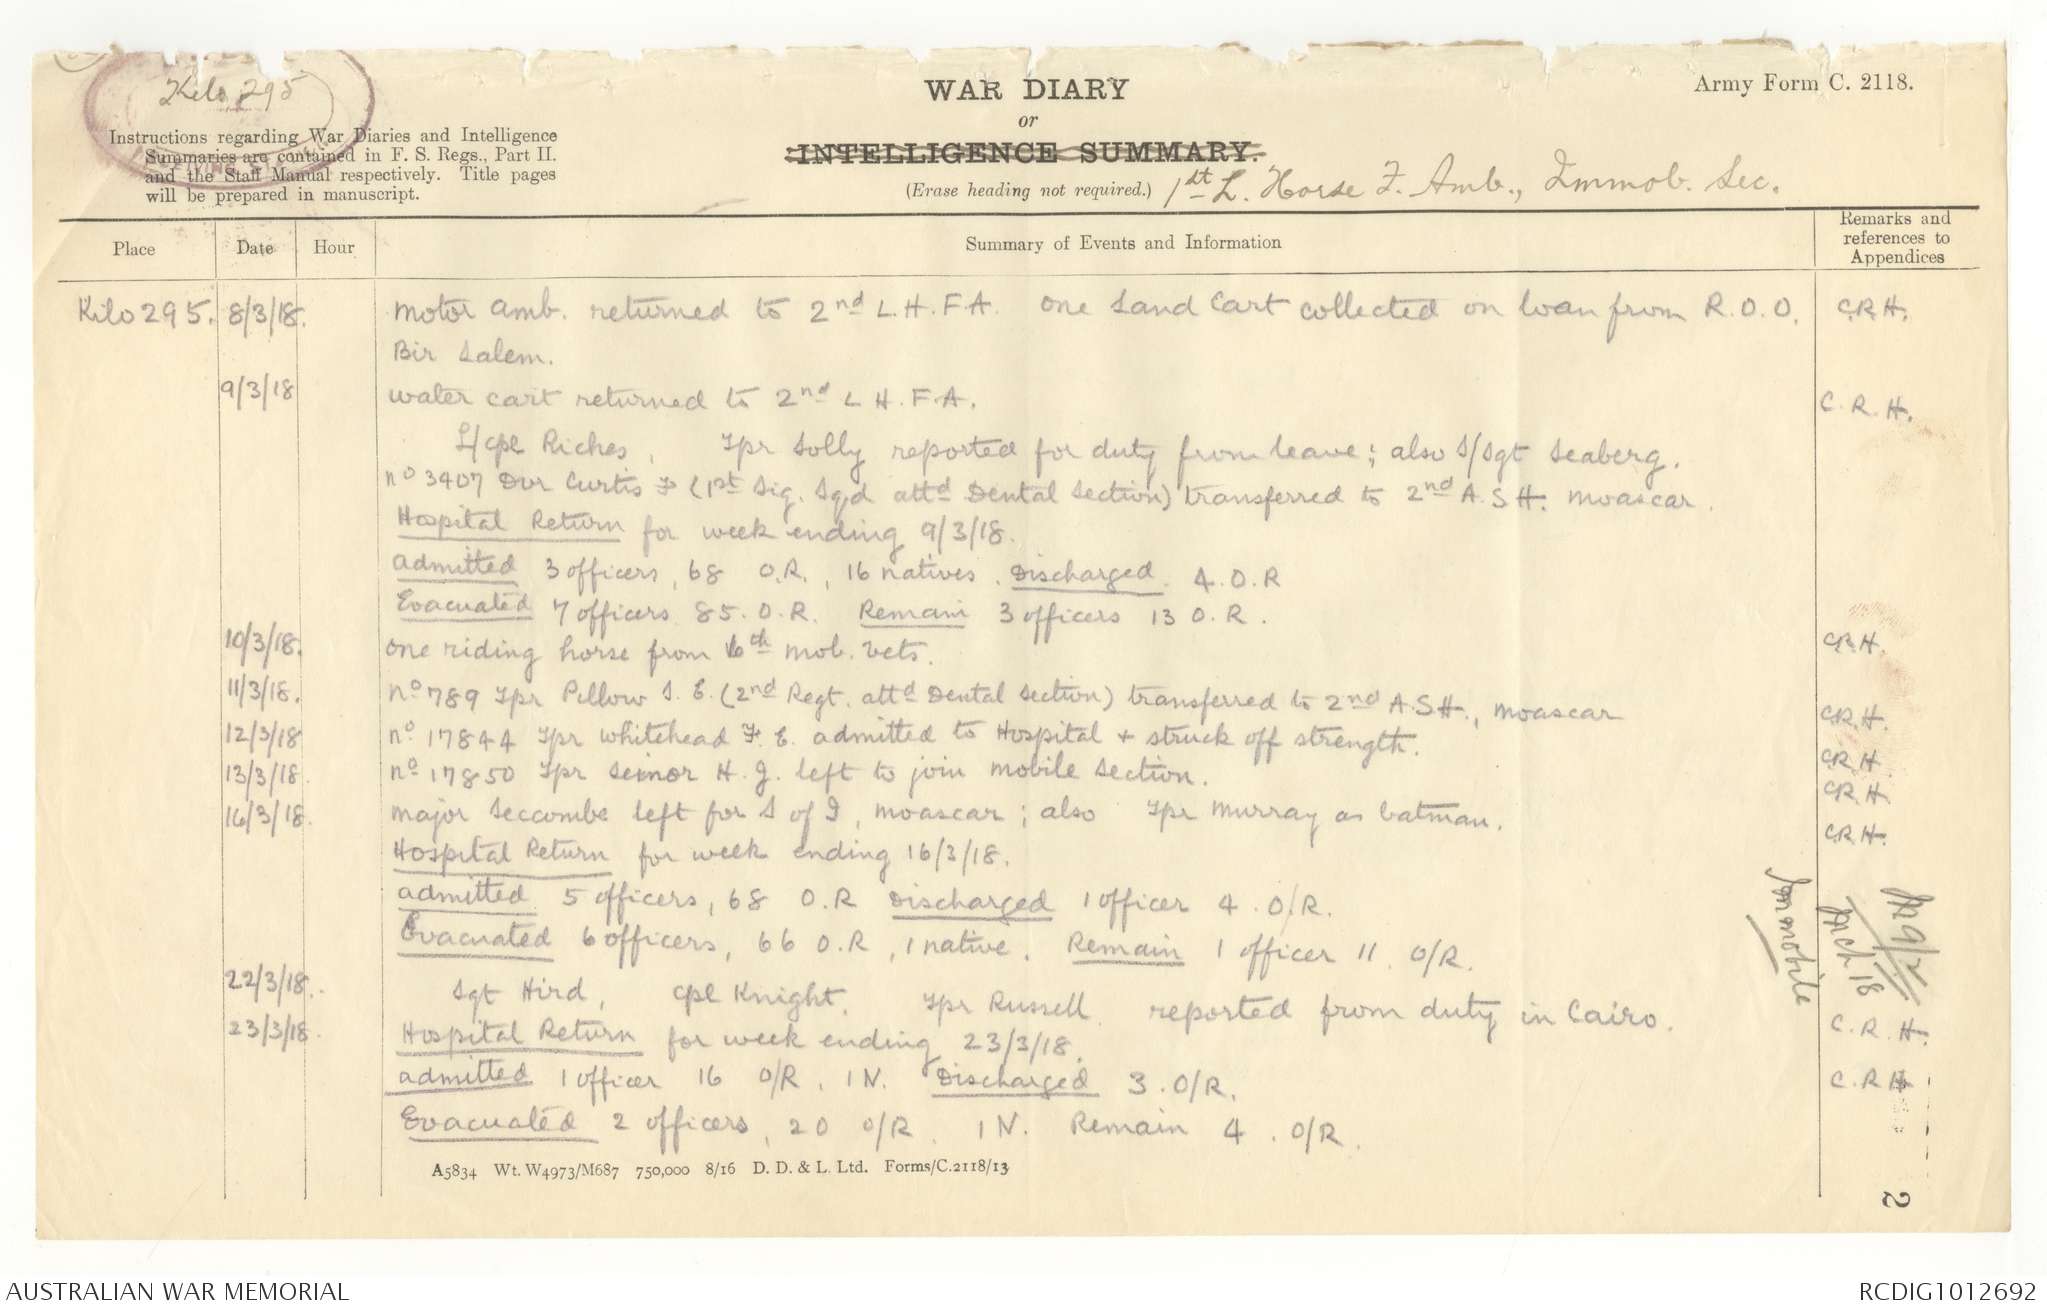 Kilo 295
WAR DIARY
or
INTELLIGENCE SUMMARY.
(Erase heading not required.)
Army Form C. 2118.
Instructions regarding War Diaries and Intelligence
Summaries are contained in F. S. Regs., Part II.
and the Staff Manual respectively. Title pages
will be prepared in manuscript.
1st L. Horse F. Amb., Immob. Sec.
Place Date Hour Summary of Events and Information Remarks and references to Appendices
Kilo 295. 8/3/18. Motor Amb. returned to 2nd L.H.F.A. One Sand Cart collected on loan from R.O.O. C.R.H.
Bir Salem.
9/3/18 Water cart returned to 2nd L H.F.A. C.R.H.
L/cpl Riches, Tpr Solly reported for duty from leave; also S/Sgt Seaberg.
No 3407 Dvr Curtis F (1st Sig. Sqd attd Dental Section) transferred to 2nd A.S H. Moascar.
Hospital Return for week ending 9/3/18.
Admitted 3 officers, 68 O.R., 16 natives. Discharged 4.O.R
Evacuated 7 officers 85.O.R. Remain 3 officers 13 O.R.
10/3/18. One riding horse from 6th Mob. Vets. C.R.H.
11/3/18. No 789 Tpr Pillow S.E. (2nd Regt. attd Dental Section) transferred to 2nd A.S H., Moascar C.R.H.
12/3/18 No 17844 Tpr Whitehead F.E. admitted to Hospital + struck off strength. C.R.H
13/3/18. No 17850 Tpr Seinor H.J. left to join Mobile Section. C.R.H.
16/3/18. Major Seccombe left for S of I, Moascar; also Tpr Murray as batman. C.R.H.
Hospital Return for week ending 16/3/18.
Admitted 5 officers, 68 O.R Discharged 1 officer 4. O/R.
Evacuated 6 officers, 66 O.R, 1 native. Remain 1 officer 11 O/R.
22/3/18. Sgt Hird, Cpl Knight, Tpr Russell reported from duty in Cairo. C.R.H.
23/3/18. Hospital Return for week ending 23/3/18. C.R.H
Admitted 1 officer 16 O/R. 1 N. Discharged 3.O/R.
Evacuated 2 officers, 20 O/R. 1 N. Remain 4. O/R.
Immobile
Mch 18
A5834 Wt. W4973/M687 750,000 8/16 D. D. & L. Ltd. Forms/C.2118/13
2
AUSTRALIAN WAR MEMORIAL
RCDIG1012692